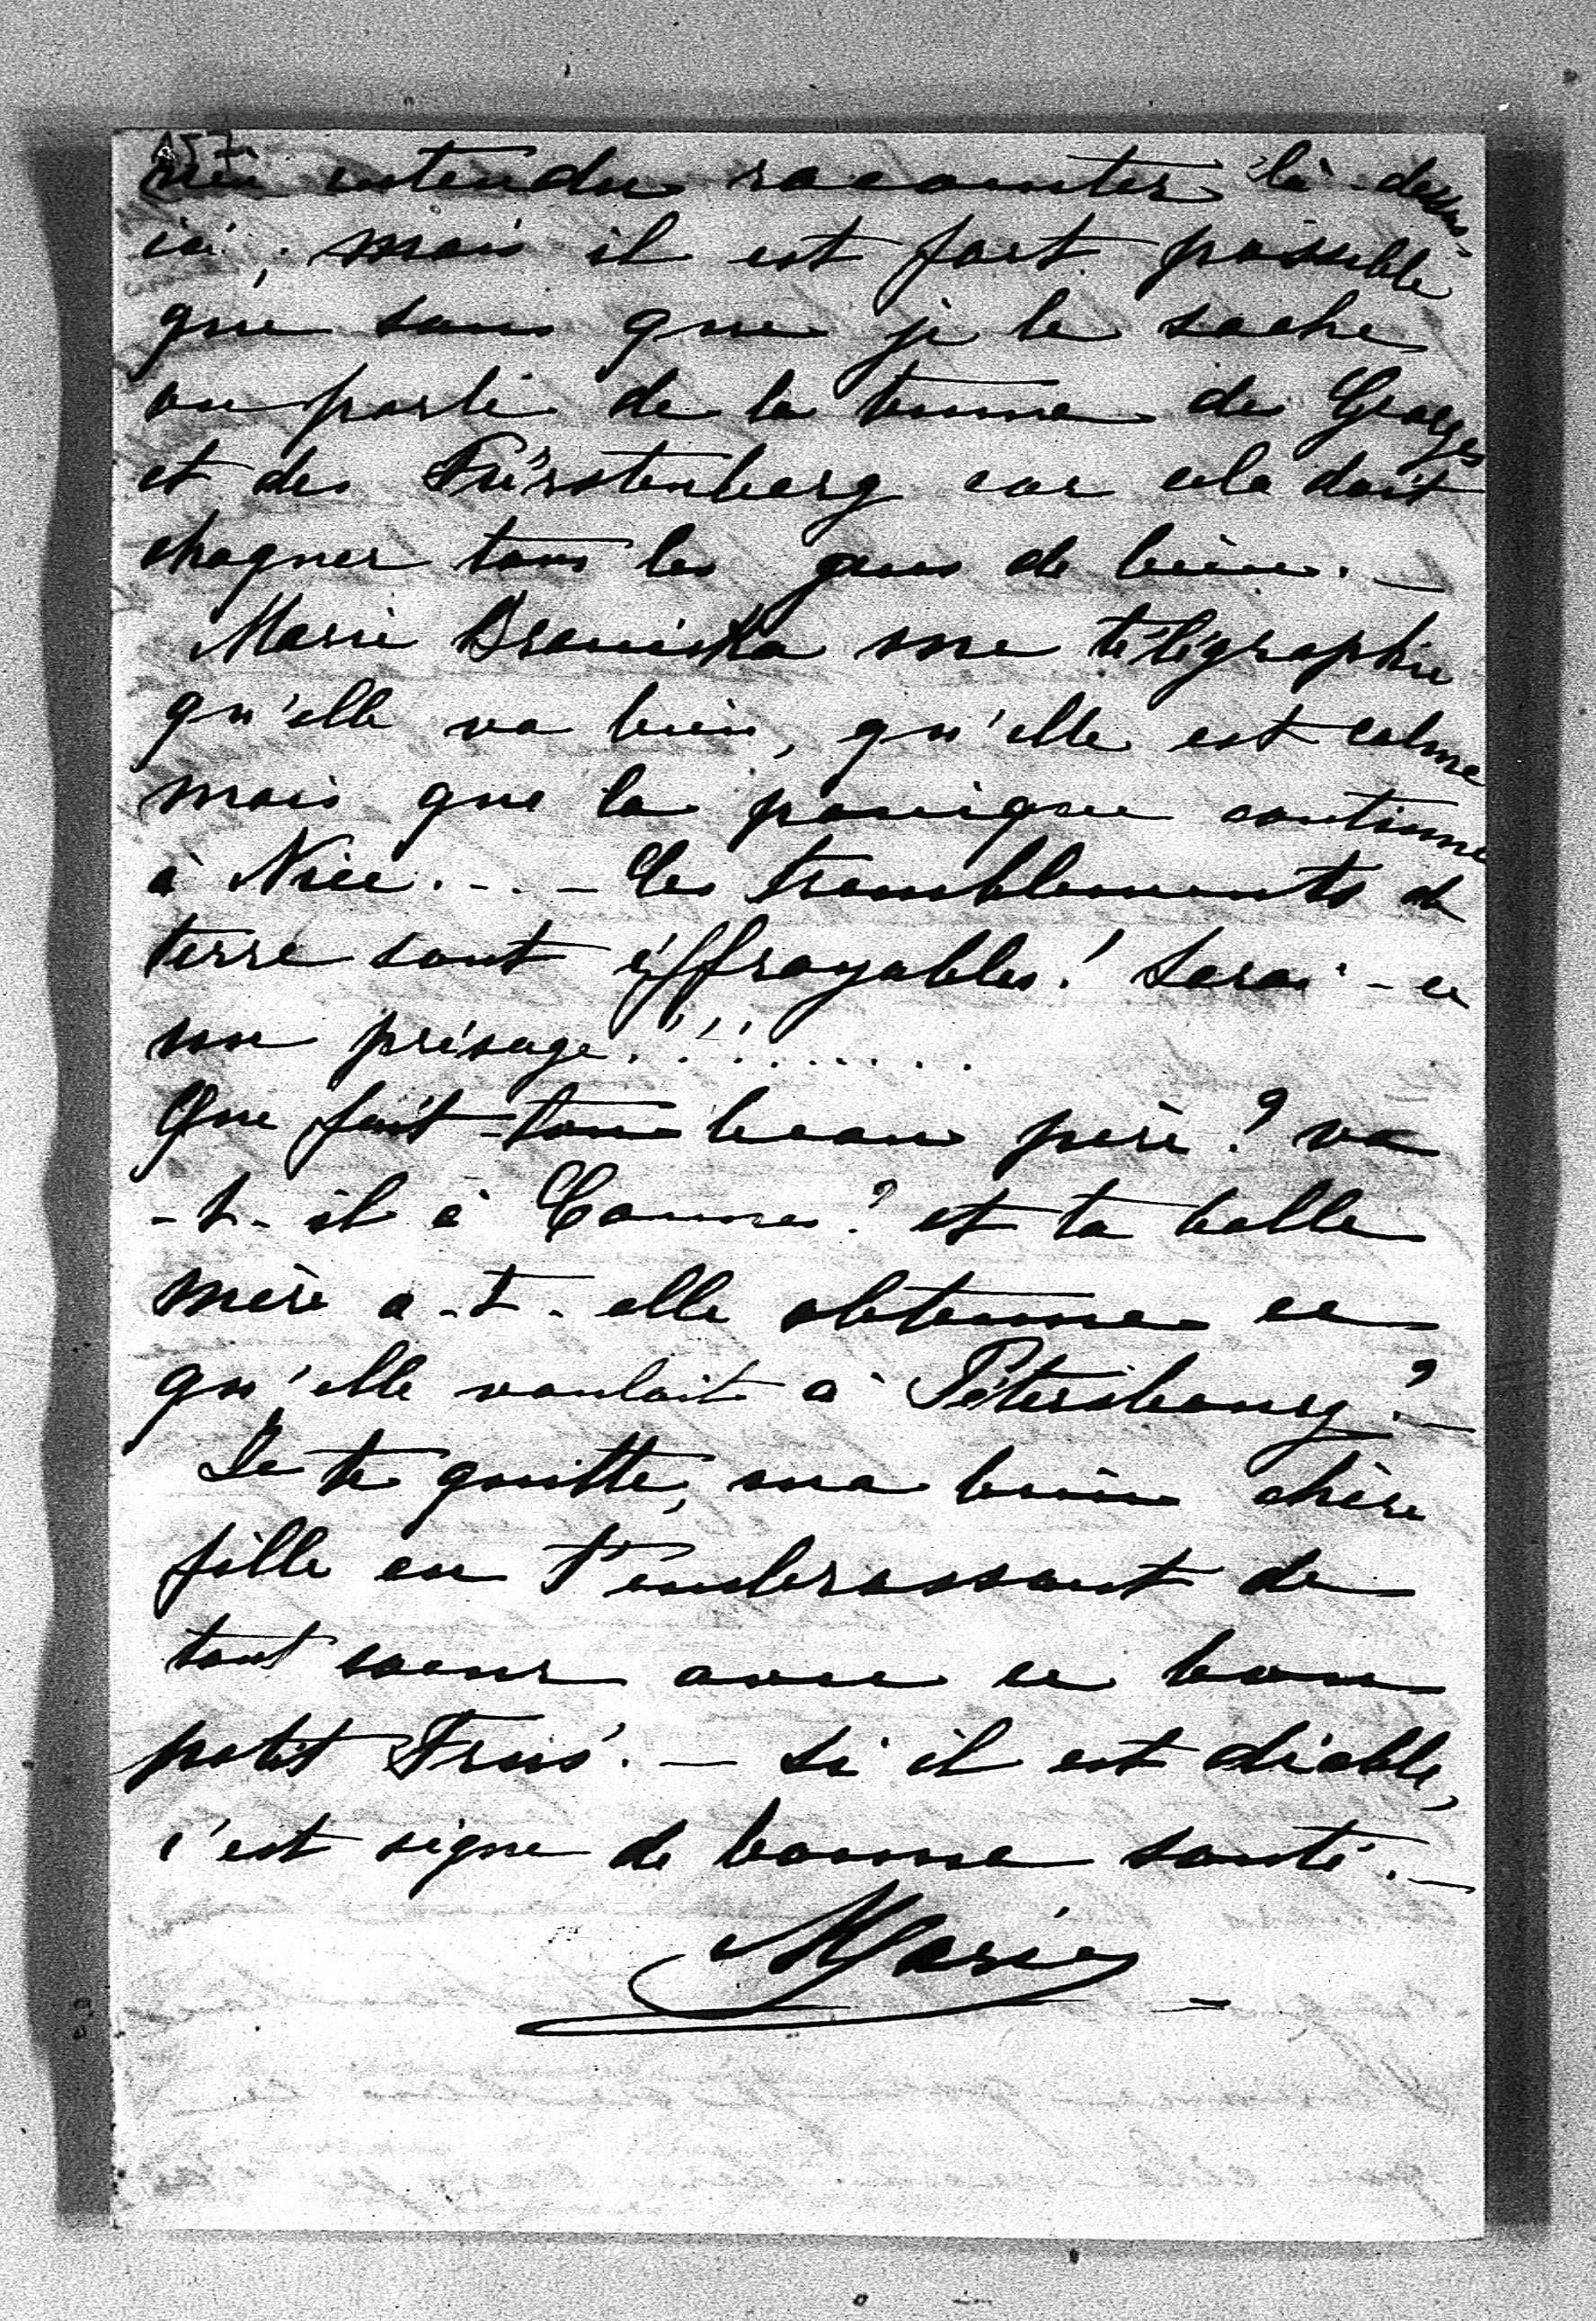 157
rien entendu raconter là-dessus
ici; mais il est fort possible
que sans que je le sache
on parle de la tenue de Georges
et des Fürstenberg car cela doit
choquer tous les gens de bien. —
Marie Branicka me télégraphie
qu'elle va bien, qu'elle est calme
mais que la panique continue
à Nice. - . - Ces tremblements de
terre sont éffroyables! Serai-ce
un présage.!!.......
Que fait ton beau père? va
-t-il à Cannes? et ta belle
mère a-t-elle obtenue ce
qu'elle voulait à Pétersbourg? —
Je te quitte, ma bien chère
fille en t'embrassant de
tout coeur avec ce bon
petit . — Si il est diable,
c'est signe de bonne santé. —
Marie